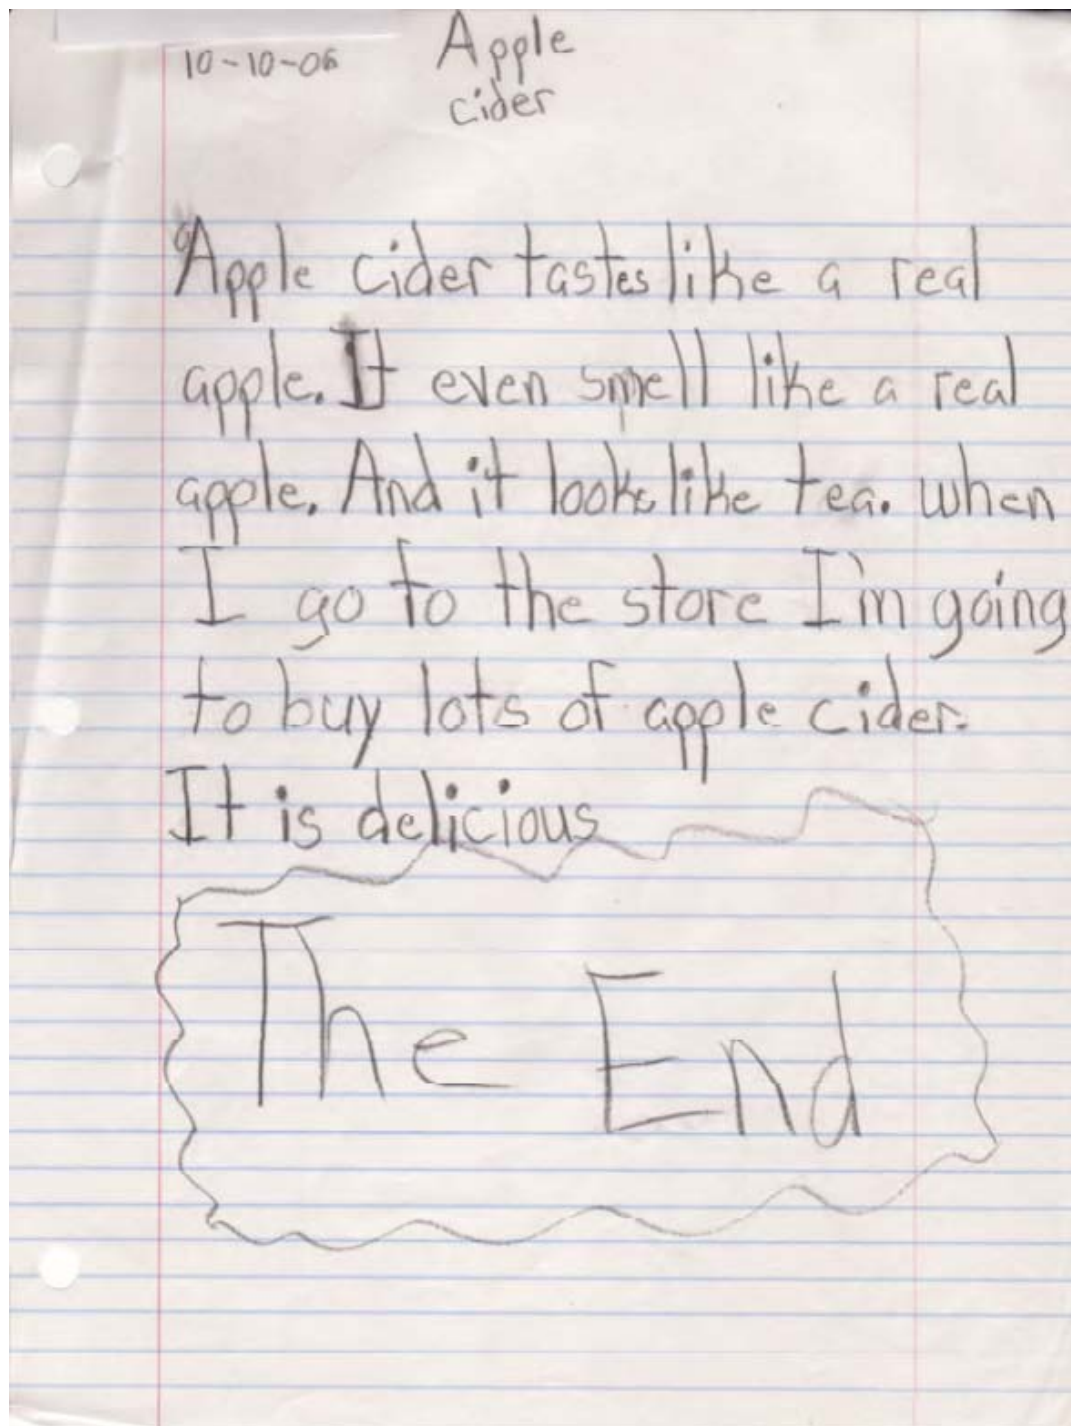 10-10-06 Apple
cider
Apple cider tastes like a real
apple. It even smell like a real
apple. And it looks like tea. when
I go to the store I'm going
to buy lots of apple cider.
It is delicious
The End